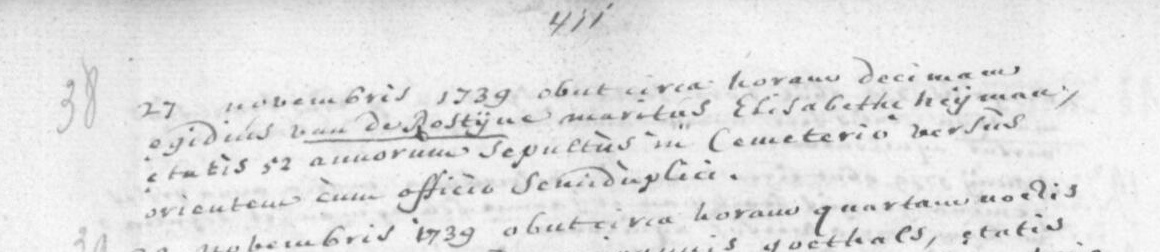 411
38
27 novembris 1739 obut circa horam decimam
egidius van de Rostÿne maritus Elisabethe heÿman,
etatis 52 annorum sepultùs in Cemeterio versùs
orientem cum officio semiduplici.
novembris 1739 obut circa horam quartam noctis
goethals, etatis